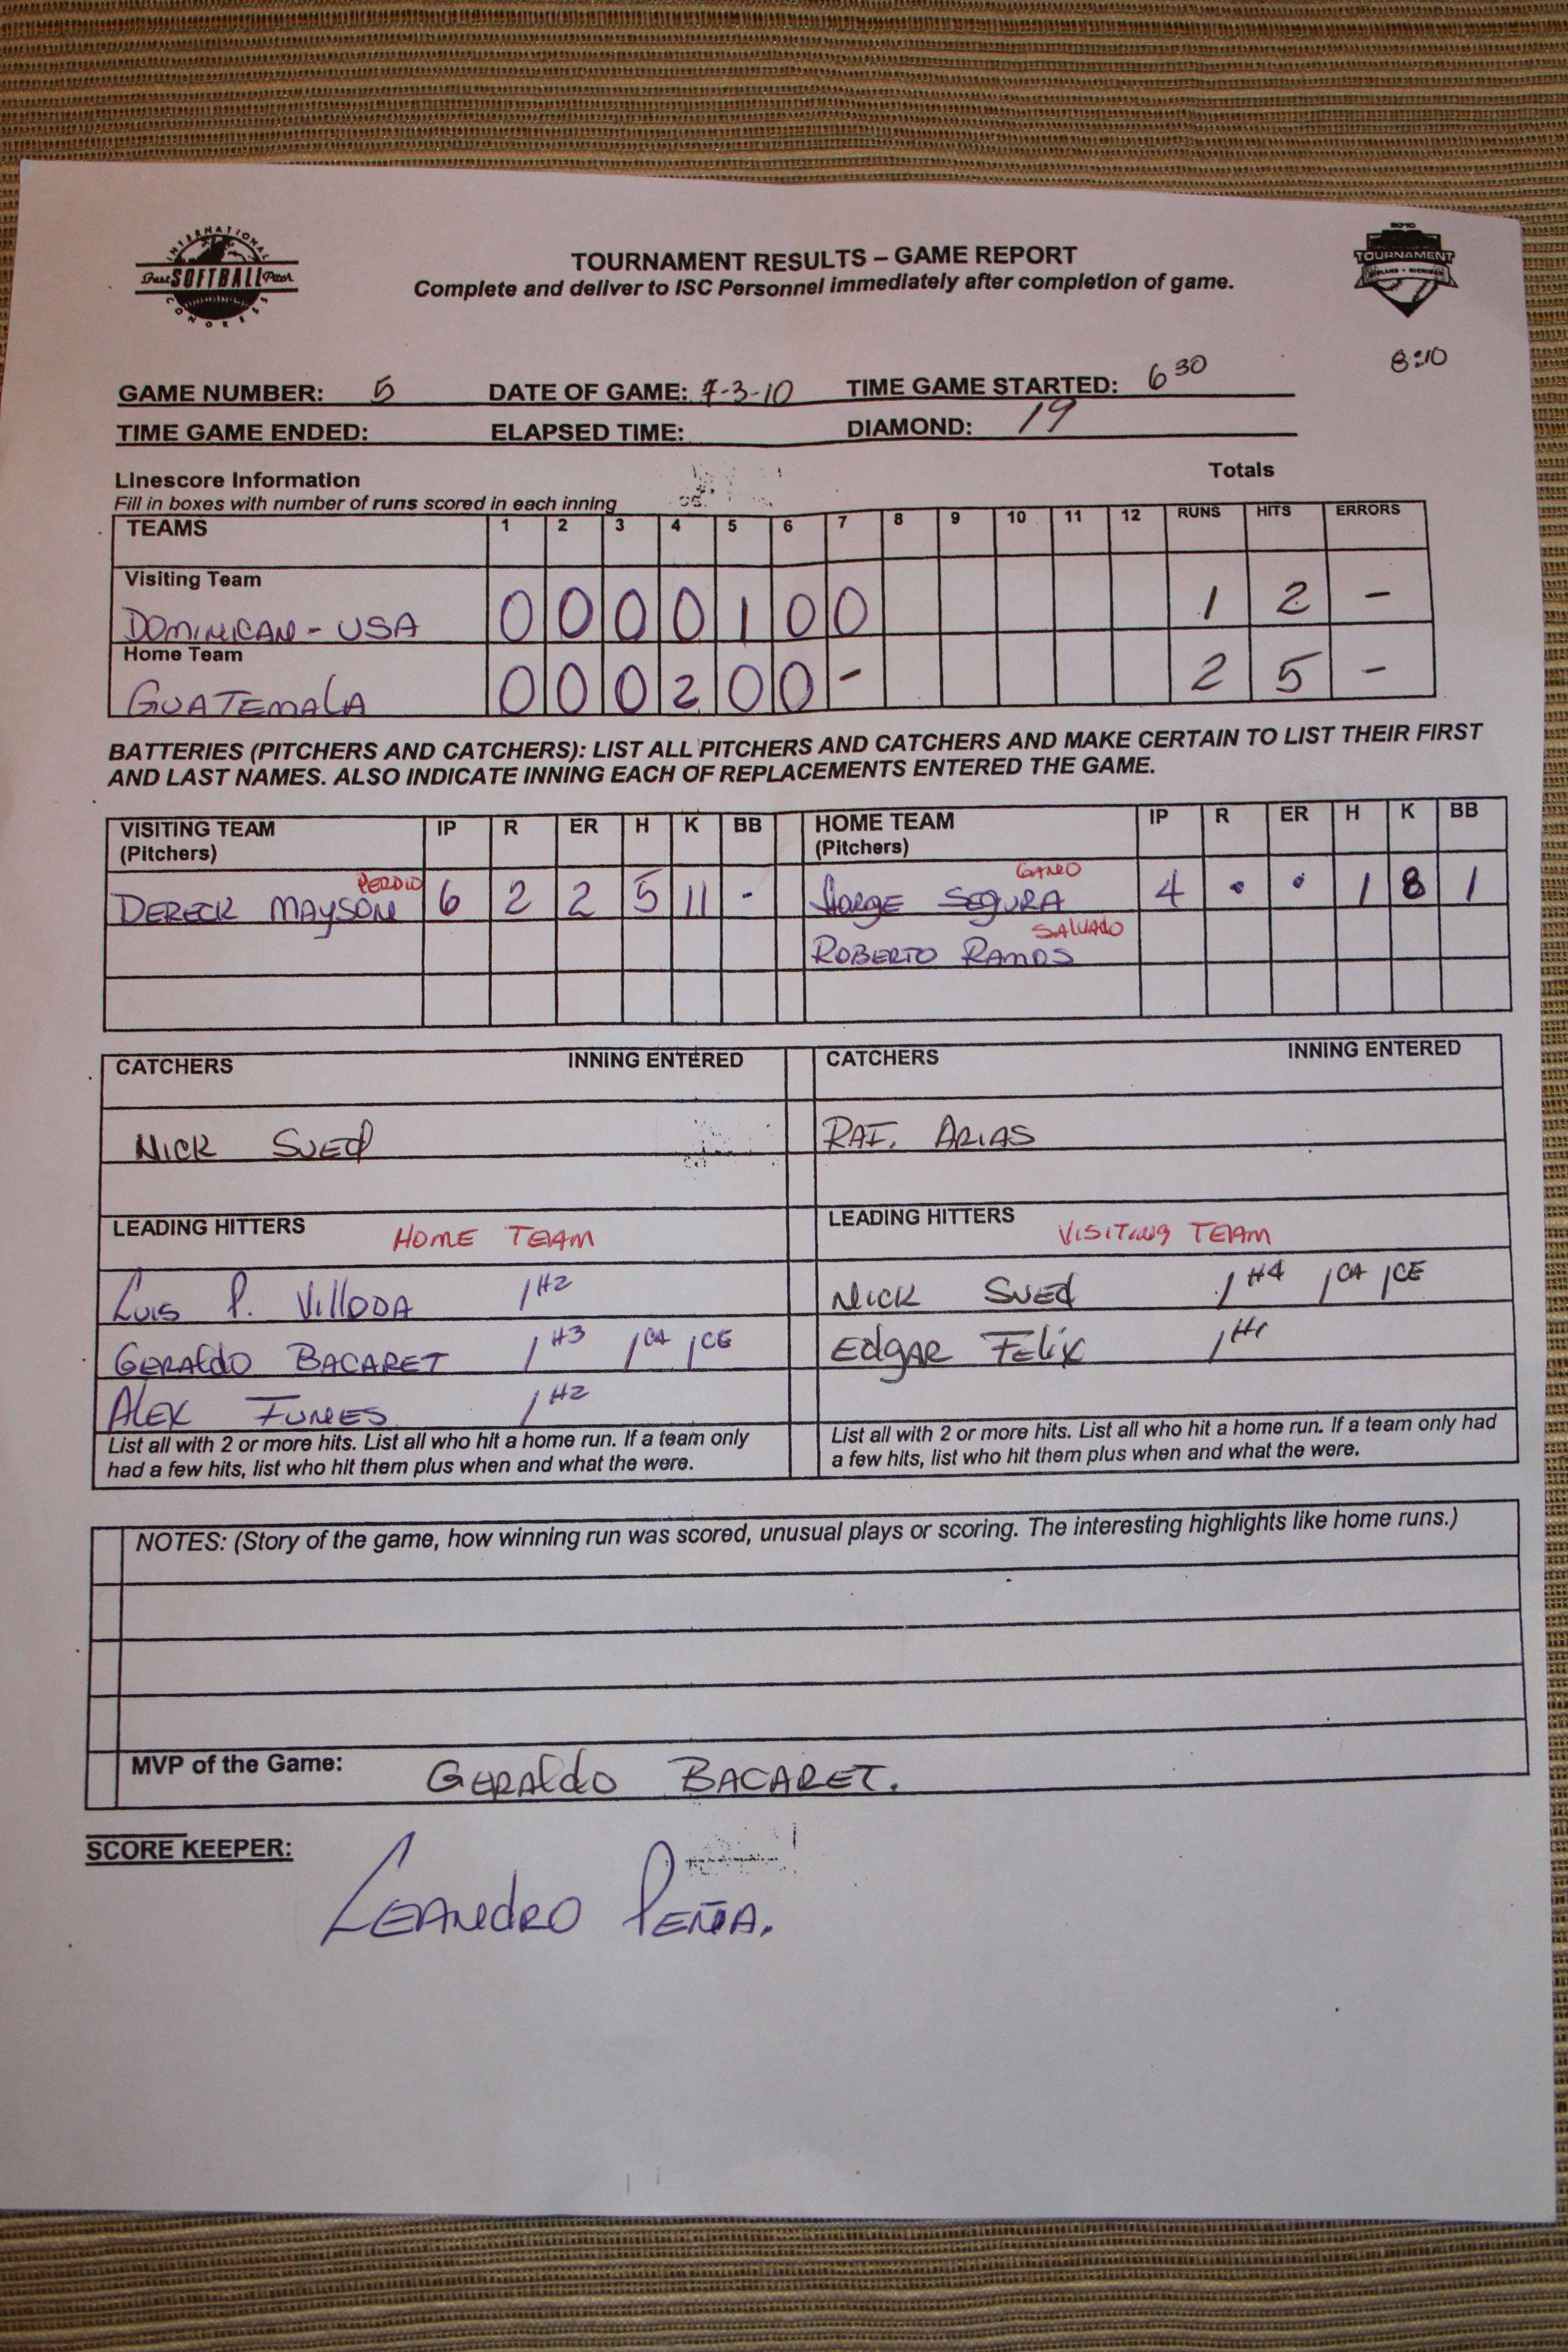 INTERNATIONAL
Fast SOFTBALL Pitch
CONGRESS
2010
TOURNAMENT
MIDLAND • MICHIGAN
TOURNAMENT RESULTS – GAME REPORT
Complete and deliver to ISC Personnel immediately after completion of game.
8:10
GAME NUMBER: 5 DATE OF GAME: 7-3-10 TIME GAME STARTED: 6 30
TIME GAME ENDED: ELAPSED TIME: DIAMOND: 19
Linescore Information Totals
Fill in boxes with number of runs scored in each inning
TEAMS 1 2 3 4 5 6 7 8 9 10 11 12 RUNS HITS ERRORS
Visiting Team
DOMINICAN - USA 0 0 0 0 1 0 0 1 2 -
Home Team
GUATEMALA 0 0 0 2 0 0 - 2 5 -
BATTERIES (PITCHERS AND CATCHERS): LIST ALL PITCHERS AND CATCHERS AND MAKE CERTAIN TO LIST THEIR FIRST
AND LAST NAMES. ALSO INDICATE INNING EACH OF REPLACEMENTS ENTERED THE GAME.
VISITING TEAM IP R ER H K BB HOME TEAM IP R ER H K BB
(Pitchers) (Pitchers)
PERDIO GANO
DERECK MAYSON 6 2 2 5 11 - JORGE SEGURA 4 • • 1 8 1
SALVADO
ROBERTO RAMOS
CATCHERS INNING ENTERED CATCHERS INNING ENTERED
NICK SUED RAF. ARIAS
LEADING HITTERS HOME TEAM LEADING HITTERS VISITING TEAM
LUIS P. VILLODA 1 H2 NICK SUED 1 H4 1 CA 1 CE
GERALDO BACARET 1 H3 1 CA 1 CE EDGAR FELIX 1 H1
ALEX FUNES 1 H2
List all with 2 or more hits. List all who hit a home run. If a team only List all with 2 or more hits. List all who hit a home run. If a team only had
had a few hits, list who hit them plus when and what the were. a few hits, list who hit them plus when and what the were.
NOTES: (Story of the game, how winning run was scored, unusual plays or scoring. The interesting highlights like home runs.)
MVP of the Game: GERALDO BACARET.
SCORE KEEPER:
LEANDRO PEÑA.